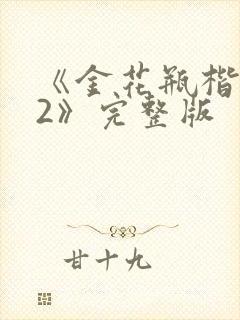 《金花瓶楷
2》完整版
甘十九